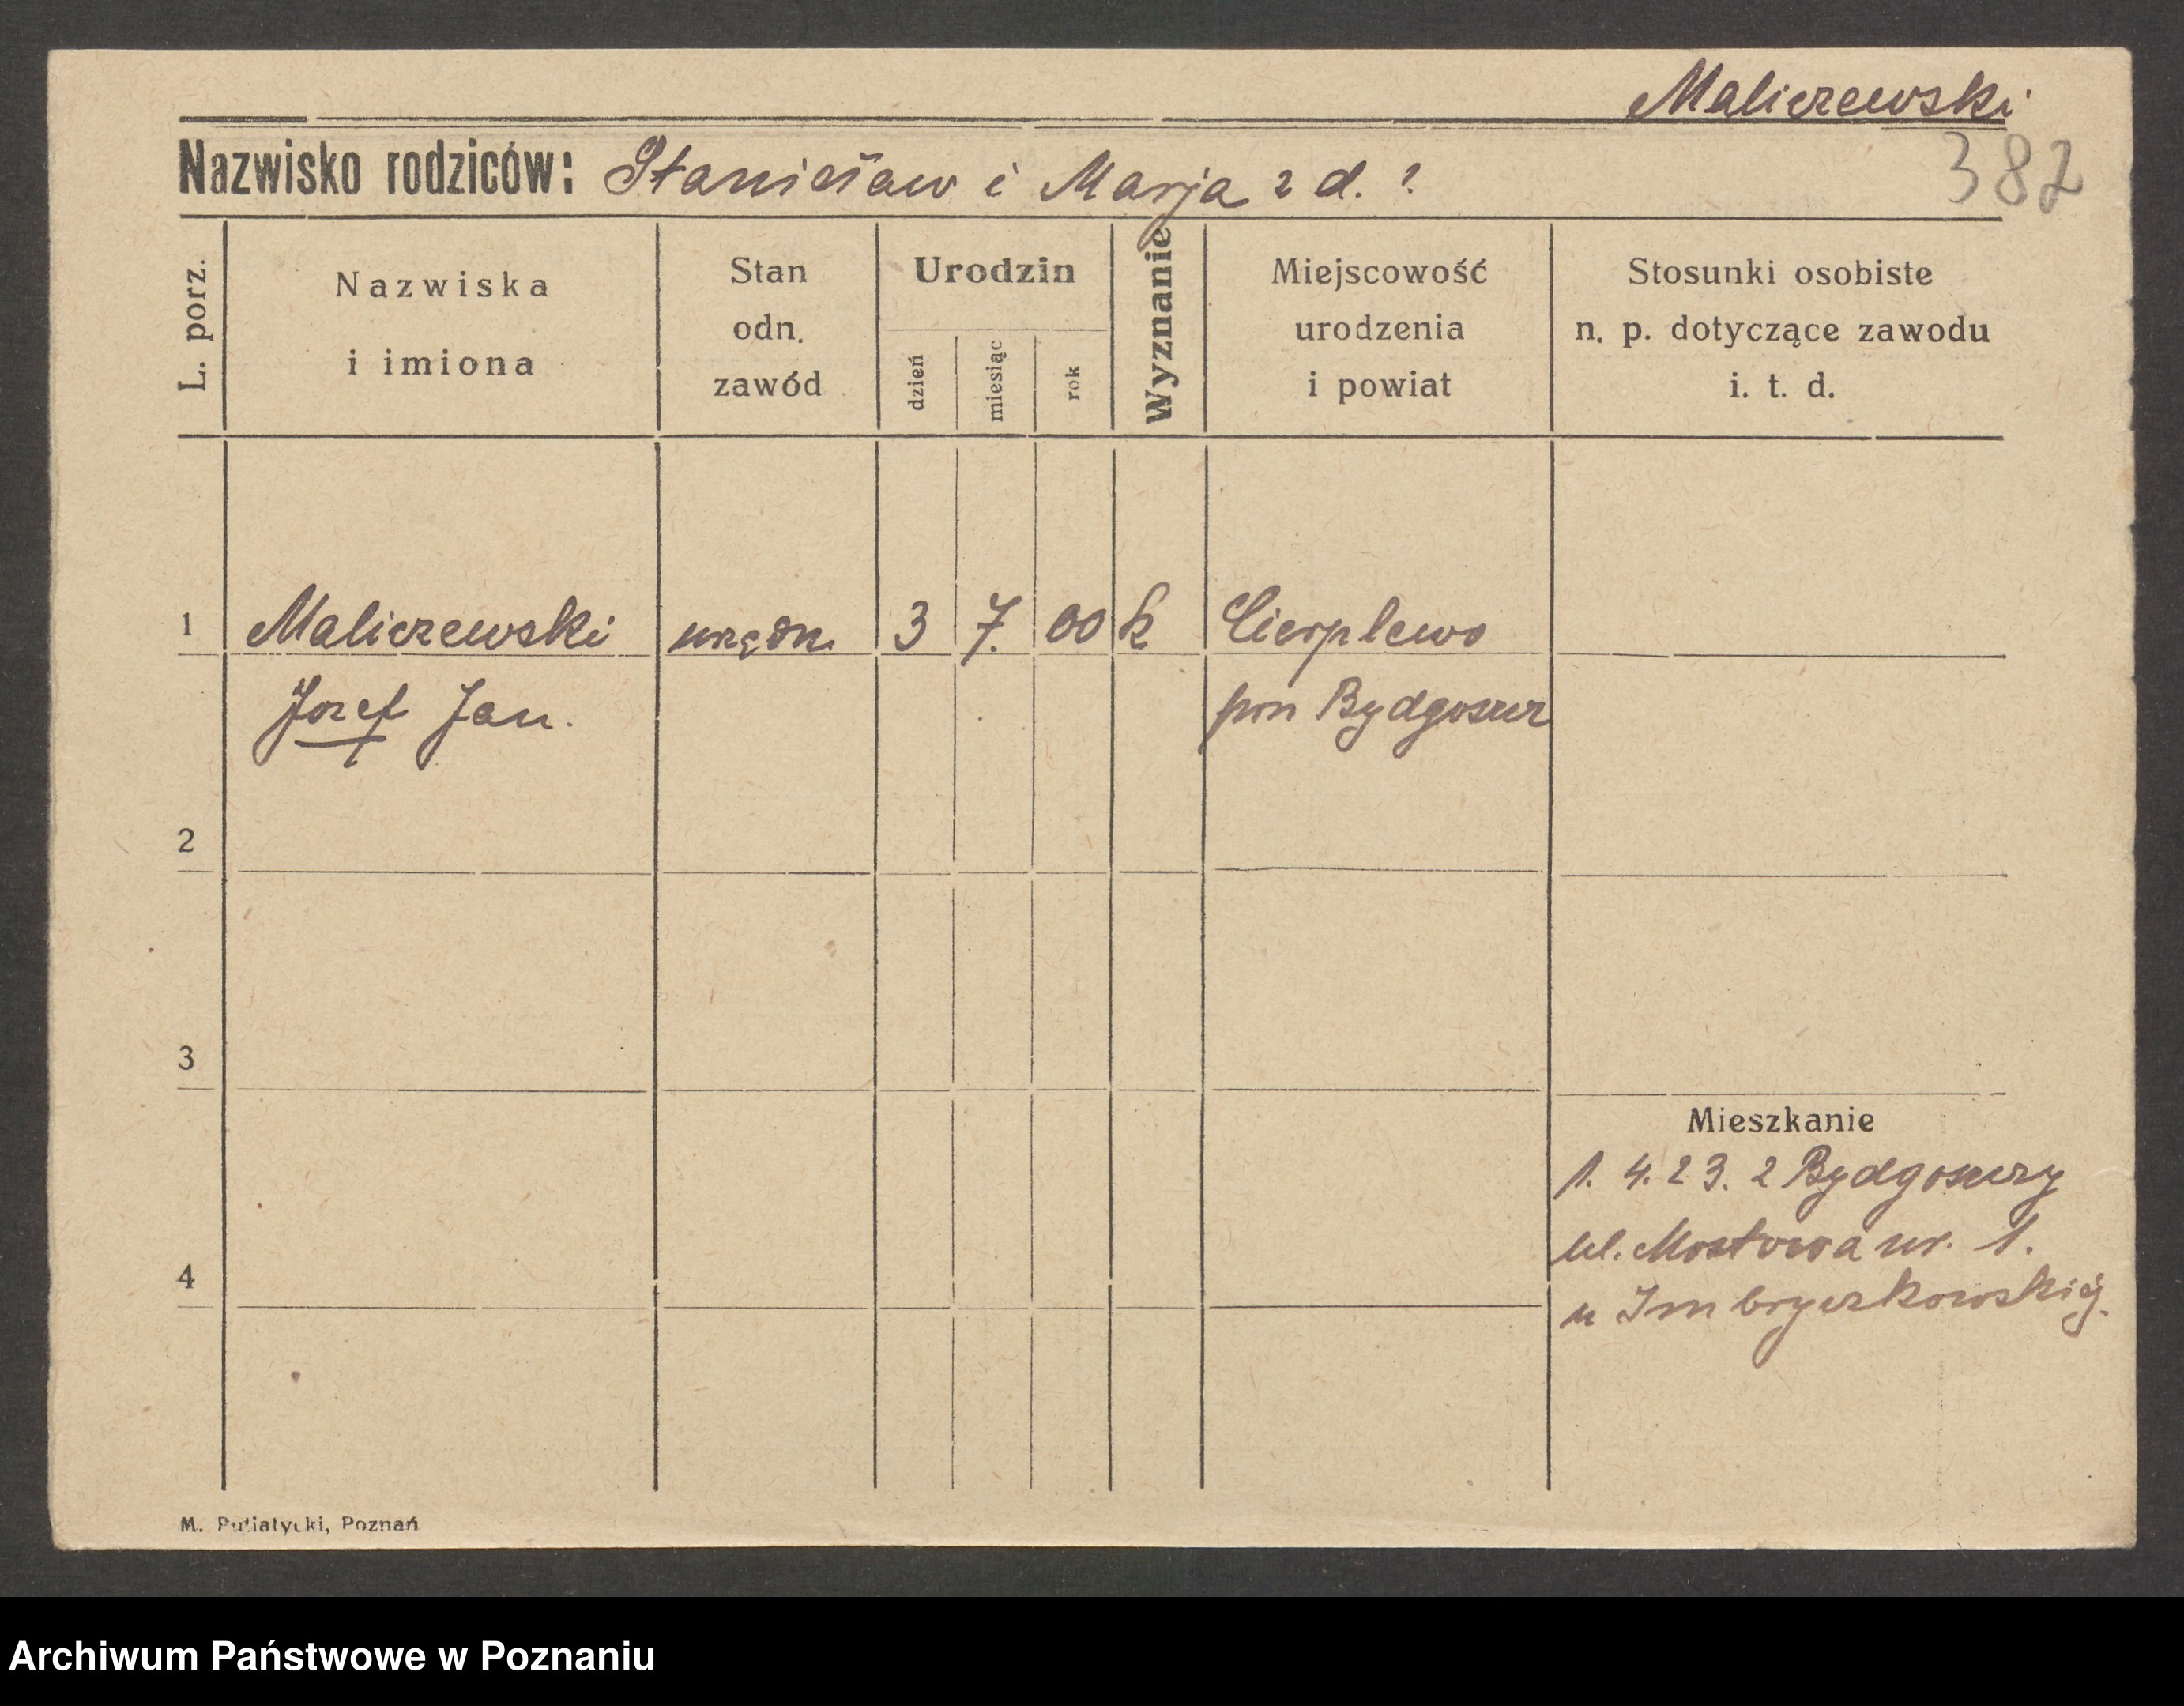 Maliczewski
382
Nazwisko rodziców: Stanisław i Marja z d. ?
L. porz.
Nazwiska
i imiona
Stan
odn.
zawód
Urodzin
dzień
miesiąc
rok
Wyznanie
Miejscowość
urodzenia
i powiat
Stosunki osobiste
n. p. dotyczące zawodu
i. t. d.
1 Maliczewski urzędn. 3 7. 00 k Cierplewo
Jozef Jan. pow Bydgoszcz
2
3
Mieszkanie
1. 4. 23. z Bydgoszczy
ul. Mostowa nr. 1.
4
u Imbryczkowskiej.
M. Putiatycki, Poznań
Archiwum Państwowe w Poznaniu